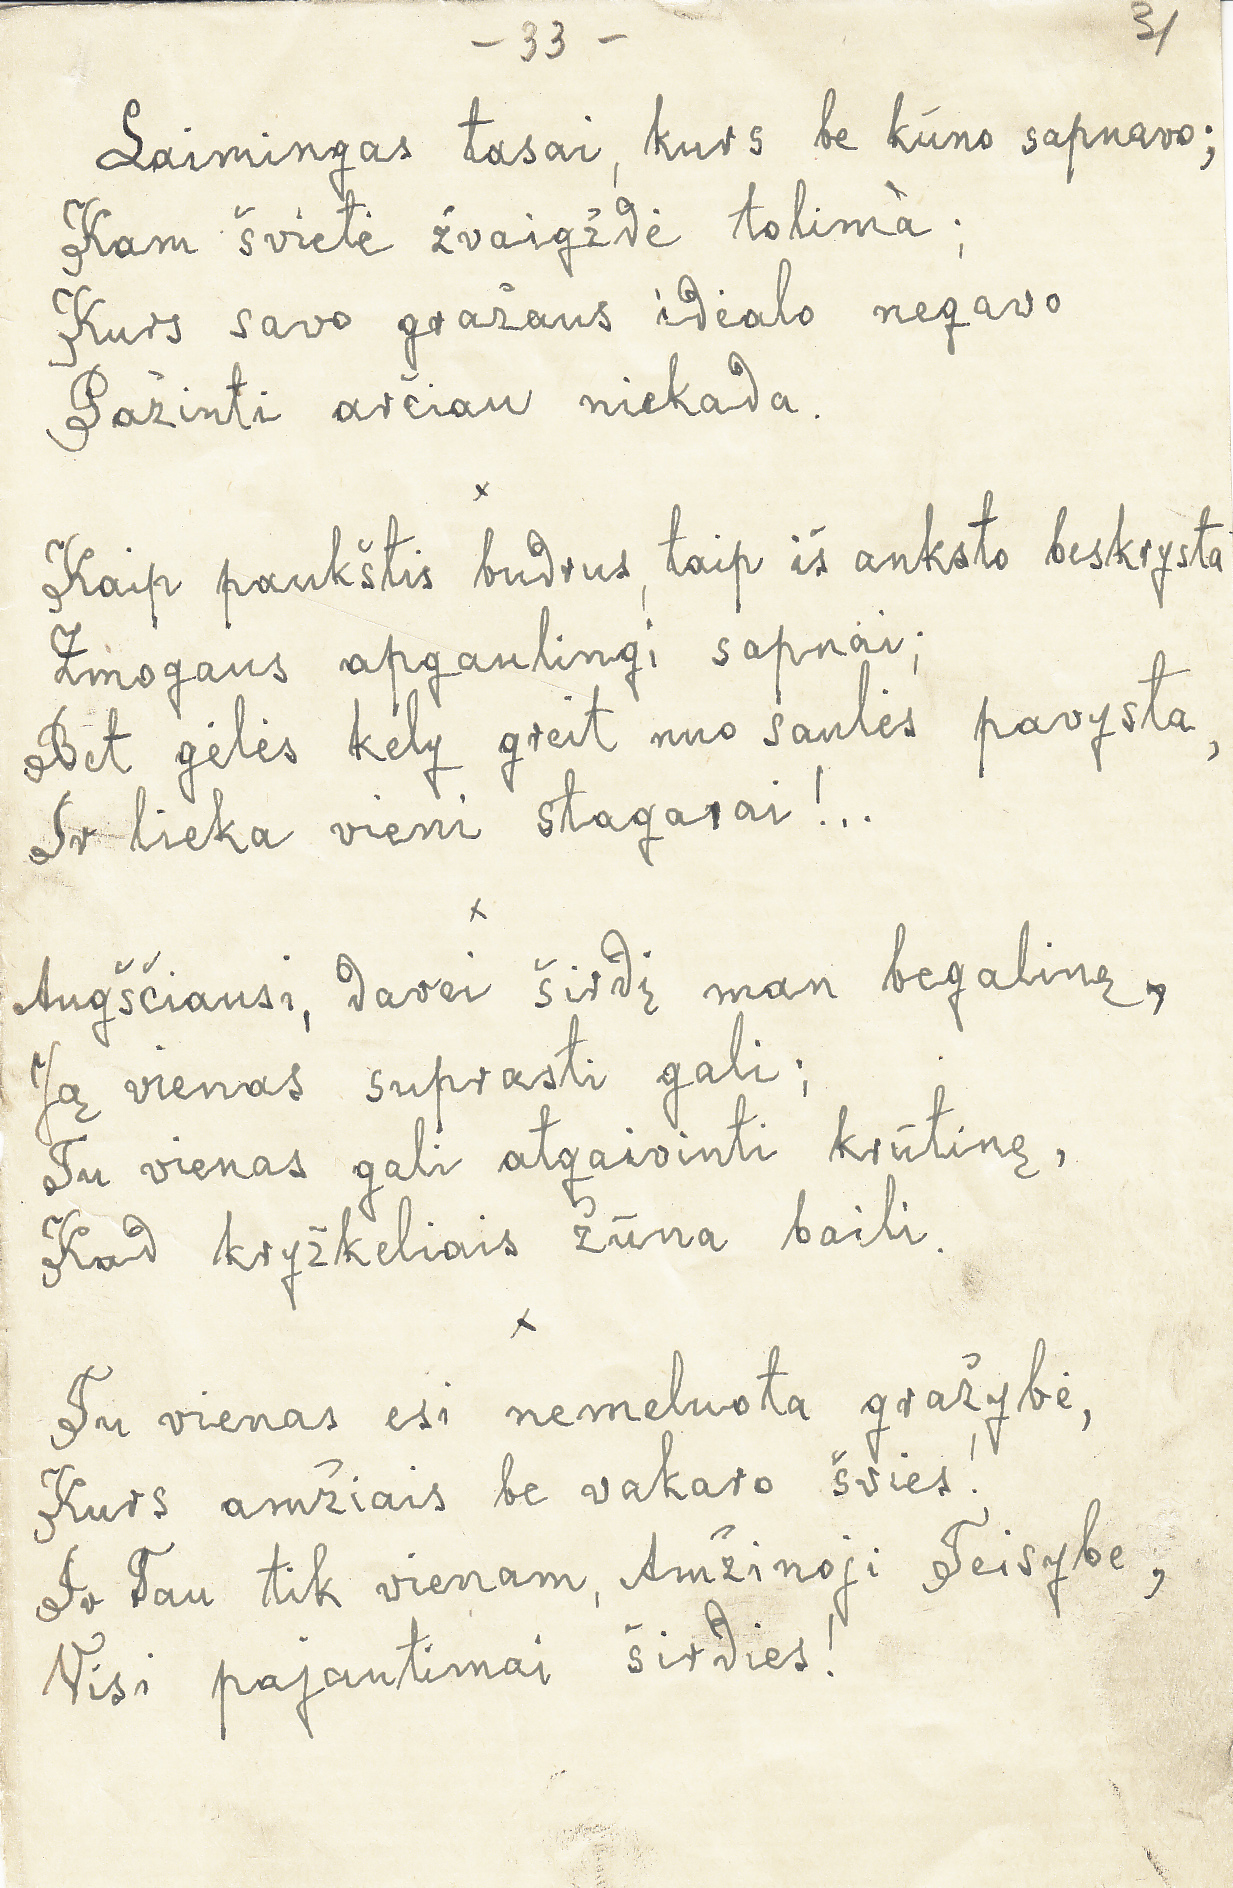 - 33 -
31
Laimingas tasai, kurs be kūno sapnavo;
Kam švietė žvaigždė tolimà;
Kurs savo gražaus idėalo negavo
Pažinti arčiau niekada.
x
Kaip paukštis budrus, taip iš anksto beskrysta
Žmogaus apgaulingi sapnai;
Bet gėlės kely greit nuo saulės pavysta,
Ir lieka vieni stagarai!..
x
Augščiausi, davei širdį man begalinę,
Ją vienas suprasti gali;
Tu vienas gali atgaivinti krūtinę,
Kad kryžkeliais žūna baili.
x
Tu vienas esi nemeluota gražybė,
Kurs amžiais be vakaro švies!
Ir Tau tik vienam, Amžinoji Teisybe,
Visi pajautimai širdies!